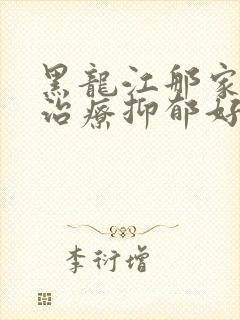 黑龍江那家
治療抑郁好
李衍增